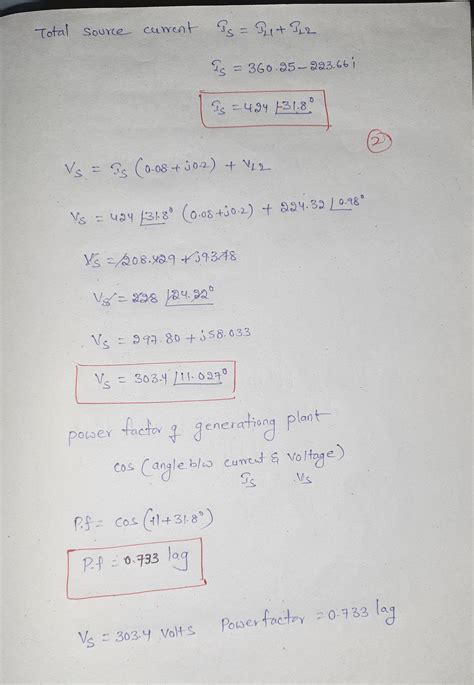 Total Source current Is = IL1 + IL2
Is = 360.25 - 223.66i
Is = 424 ∠-31.8°
2
Vs = Is (0.08 + j0.2) + VL2
Vs = 424 ∠-31.8° (0.08 + j0.2) + 224.32 ∠0.98°
Vs = 208.429 + j93.78
Vs = 228 ∠24.22°
Vs = 297.80 + j58.033
Vs = 303.4 ∠11.027°
power factor of generationg plant
cos (angle b/w current & Voltage)
Is Vs
P.f = cos (11 + 31.8°)
P.f = 0.733 lag
Vs = 303.4 Volts Power factor = 0.733 lag